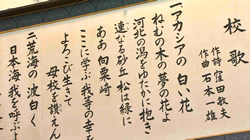 校歌
作詩 窪田敏夫
作曲 石本一雄
一 アカシアの 白い花
ねむの木の 夢の花よ
河北の潟を ゆたかに抱き
遠なる砂丘 松は緑に
ああ 向粟崎
ここに学ぶ 我等の幸を
よろこび生きて
母校を讃えん
二 荒海の 波白く
日本海 我を呼ぶ